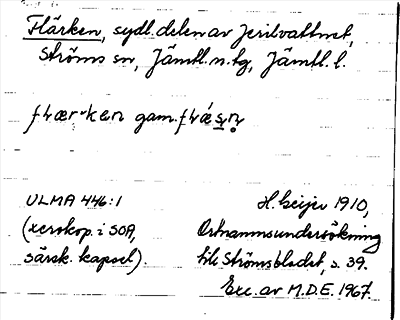 Flärken, sydl. delen av Jerilvattnet,
Ströms sn, Jämtl. n. tg, Jämtl. l.
gam.
ULMA 446:1
H. Geijer 1910,
(xerokop. i SOA,
Ortnamnsundersökning
särsk. kapsel).
till Strömsbladet, s. 39.
Exc. av M.D.E. 1967.